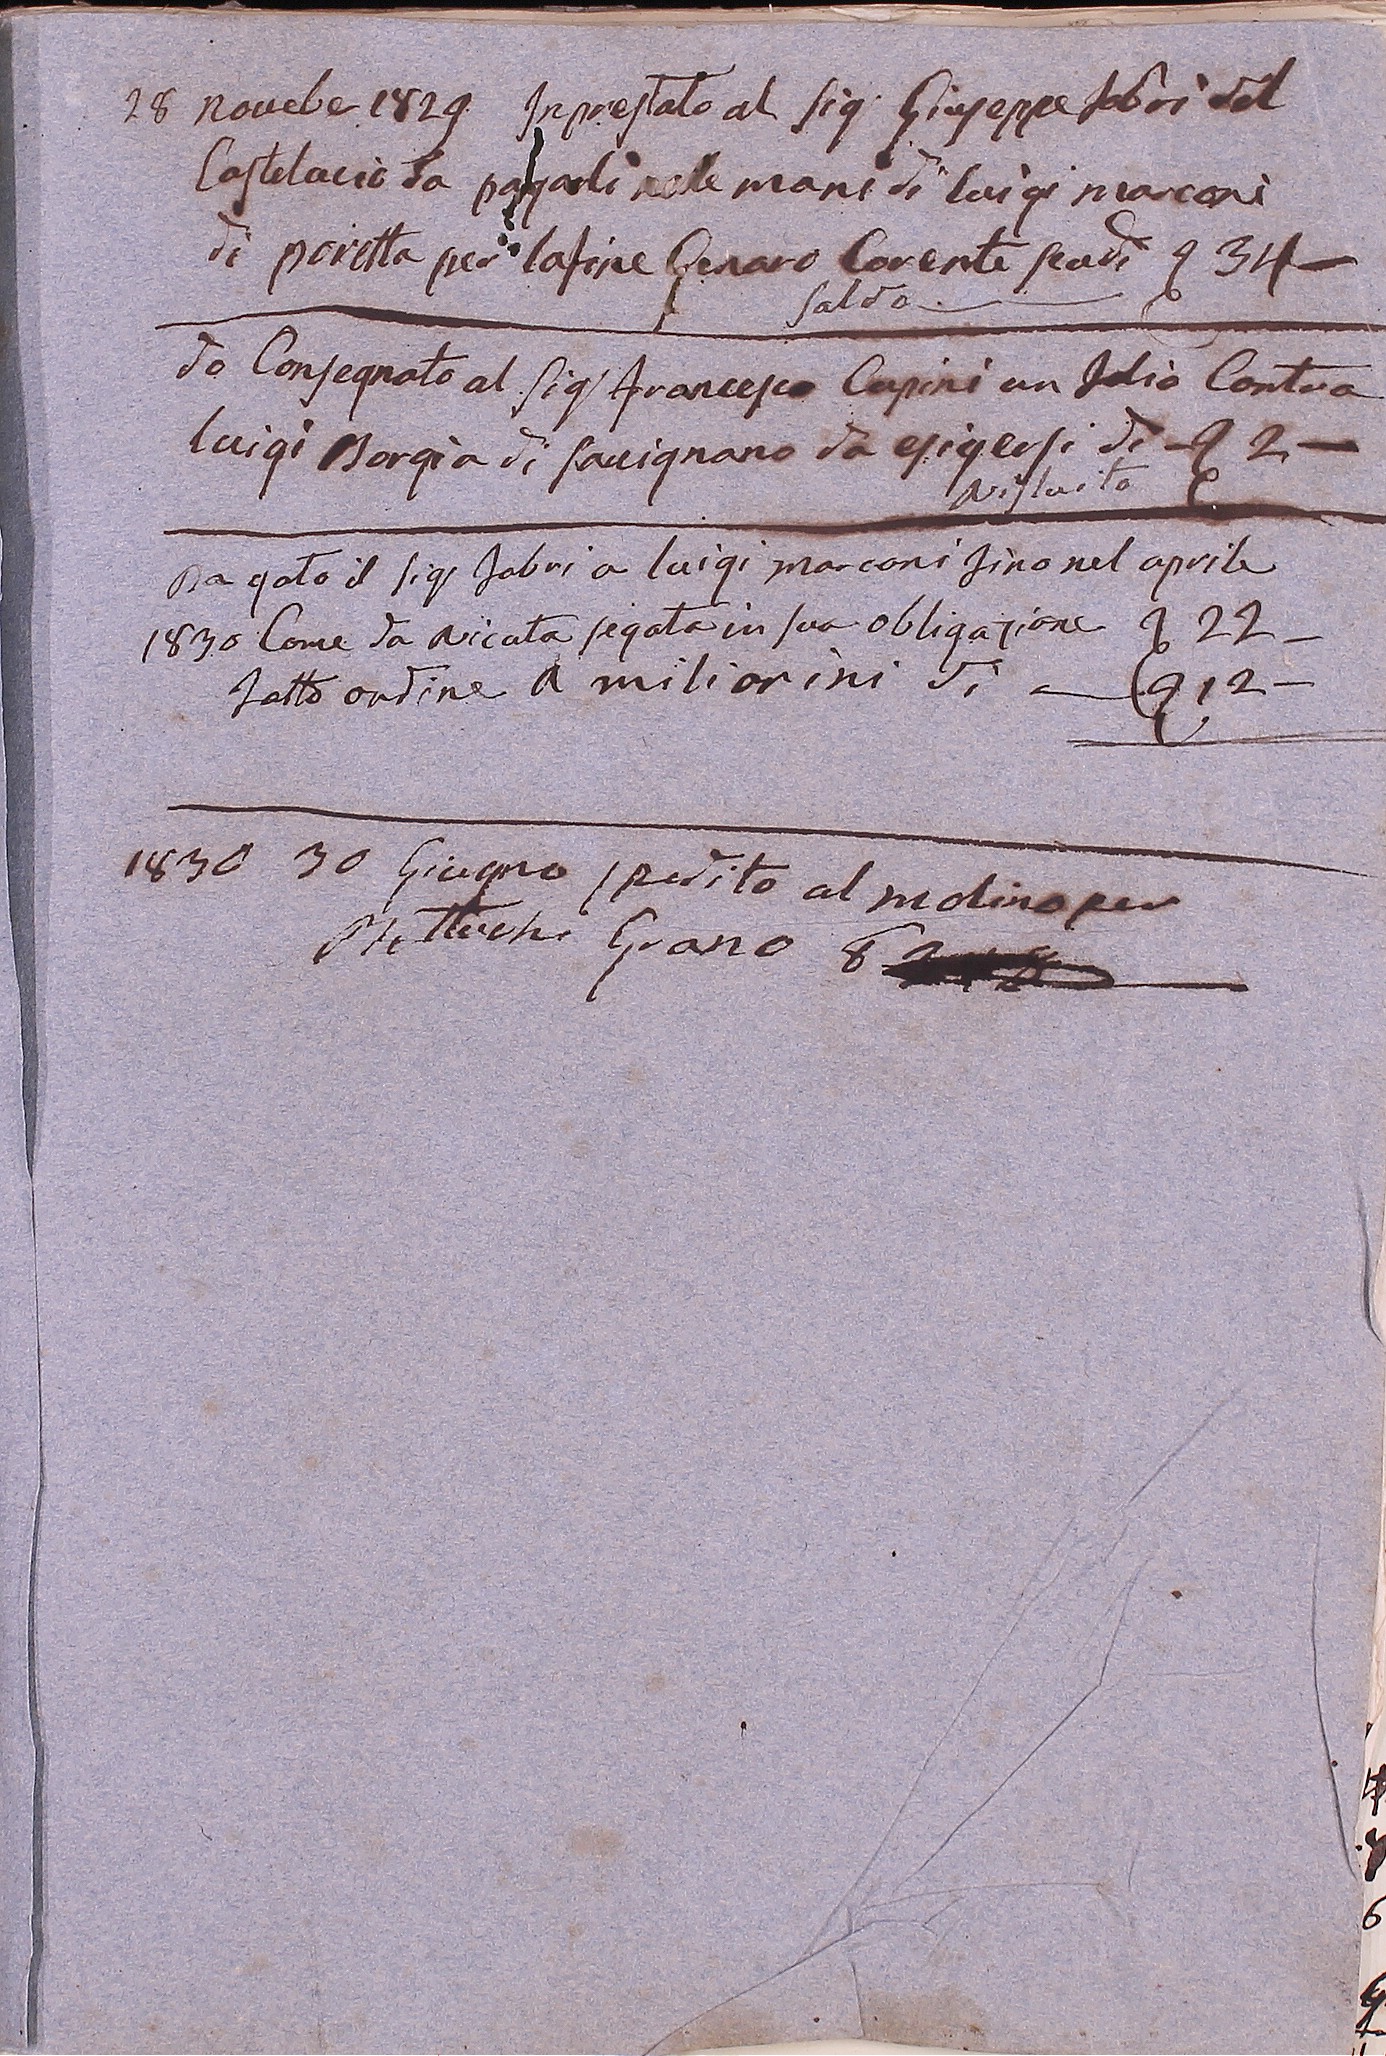 28 novebe 1829 Inprestato al Sig Giuseppe fabri del
Castelacio da pagarli nele mani di luigi marconi
di poretta per la fine Genaro Corente scudi 34 —
saldo
do Consegnato al Sig Francesco Cupini un folio Contra
luigi Borgia di savignano da esigersi di — 2 —
Pagato il Sig fabri a luigi marconi fino nel aprile
1830 Come da ricuta segata in sua obligazione 22 —
fatto ordine A miliorini di — 12 —
1830 30 Giugno spedito al molino per
Grano 8